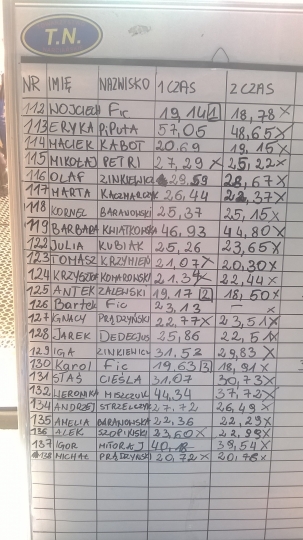 T.N.
NR IMIĘ NAZWISKO 1 CZAS 2 CZAS
112 WOJCIECH Fic 19,14 1 18,78 X
113 ERYKA PiPUTA 57,05 48,65 X
114 MACIEK KABOT 20.69 19.15 X
115 MIKOŁAJ PETRI 27,29 X 25,22 X
116 OLAF ZINKIEWICZ 29.59 28,67 X
117 MARTA KACZMARCZYK 26,44 22,37 X
118 KORNEL BARANOWSKI 25,37 25,15 X
119 BARBARA KWIATKOWSKA 46,93 44,80 X
122 JULIA KUBIAK 25,26 23,65 X
123 TOMASZ KRZYMIEŃ 21,07 X 20,30 X
124 KRZYSZTOF KOMOROWSKI 21.37 X 22,44 X
125 ANTEK ZALEWSKI 19,17 2 18,50 X
126 Bartek Fic 23,13 – X
127 IGNACY PRĄDZYŃSKI 22,77 X 23,51 X
128 JAREK DEDECJUS 25,86 22,51 X
129 IGA ZINKIEWICZ 31.53 29,83 X
130 Karol Fic 19,63 3 18,91 X
131 STAŚ CIEŚLA 31,07 30,73 X
132 WERONIKA MISZCZUK 44,34 37,72 X
134 ANDRZEJ STRZELCZYK 27.72 26,49 X
135 AMELIA BARANOWSKA 22,36 22,29 X
136 ALEK SZOPIŃSKI 23,60 X 22,98 X
137 IGOR 38,54 X
138 MICHAŁ PRĄDZYŃSKI 20,72 X 20,78 X